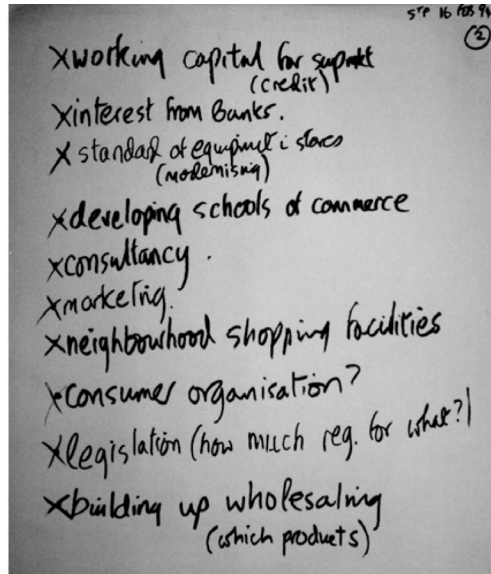 STP 16 FEB 94
②
×working capital for suprmkt
(credit)
×interest from Banks.
×standard of equipment i stores
(modernising)
×developing schools of commerce
×consultancy.
×marketing.
×neighbourhood shopping facilities
×consumer organisation?
×legislation (how much reg. for what?)
×building up wholesaling
(which products)